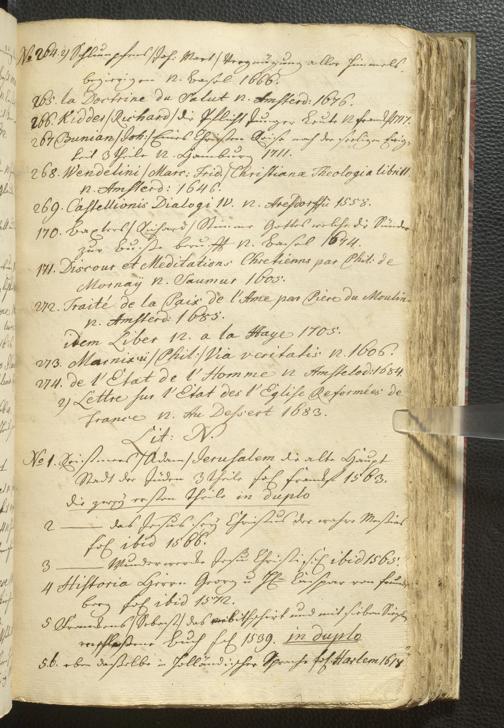 No 264. 2) Schlumpfens/ Joh. Mart/ Vergnügung aller Himmels-
begirigen n. Basel 1666.
265. la Doctrine du Salut n. Amsterd: 1676.
266 Kidder/ Richard/ die Pflicht Junger Leute n. Frankf 1717.
267 Bunian/ Joh:/ Eines Christen Reise nach der seeligen Ewig-
keit 3 Theile n. Hamburg 1711.
268. Wendelini/ Marc: Frid/ Christiana Theologia libri II
n. Amsterd: 1646.
269. Castellionis Dialogi IV. n. Aresdorffii 1558.
170. Baxters/ Richard/ Stimme Gottes welche die Sünder
zur Busse berufft n. Basel 1674.
171. Discour et Meditations Chretiennes par Phil: de
Mornaÿ n. Saumur 1605.
272. Traité de la Paix de l'Ame par Piere du Moulin
n. Amsterd: 1685.
idem Liber n. a la Haÿe 1705.
273. Marnixii/ Phil:/ Via veritatis n. 1606.
274. de l'Etat de l'Homme n Amstelod: 1684
2) Lettre sur l'Etat des l'Eglise Reformées de
France n. Au Dessert 1683.
Lit: N.
No 1. Reisners/ Adam/ Jerusalem die alte Haupt
Stadt der Juden 3 Theile fol Frankf 1563.
die zwey ersten Theile in duplo
2 — das Jesus seÿ Christus der wahre Messias
fol ibid 1566.
3 — Wunderwerke Jesu Christi fol ibid 1565.
4 Historia Herrn Georg u Caspar von Frunds
berg fol ibid 1572.
5 Franckens/ Sebast/ das mit sieben Sigeln
verschlossene buch fol 1539. in duplo
5.b. eben dasselbe in Holländischer Sprache fol Harlem 1618